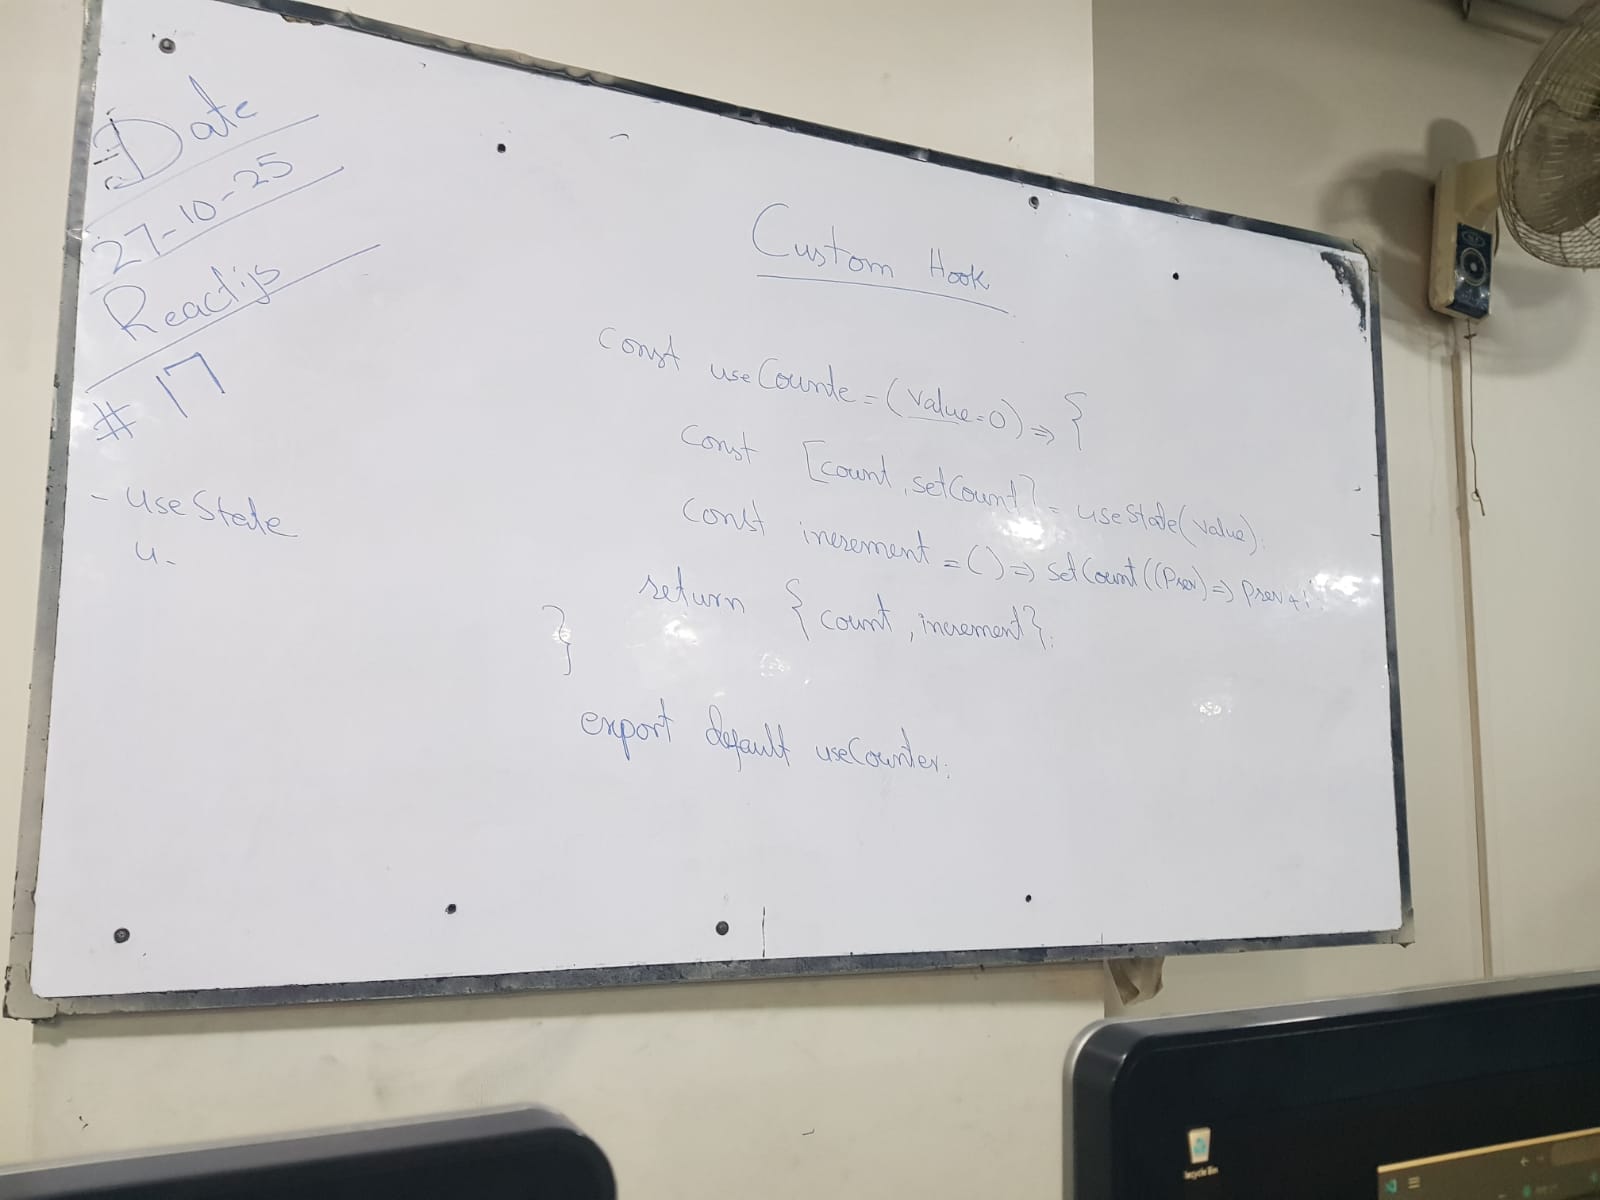 Date
27-10-25
Reactjs
# 17
- useState
u-
Custom Hook
const useCounte = (value=0) => {
const [count, setCount] = useState(value);
const increment = () => setCount((Prev) => Prev+1
return { count, increment};
}
export default useCounter;
Recycle Bin